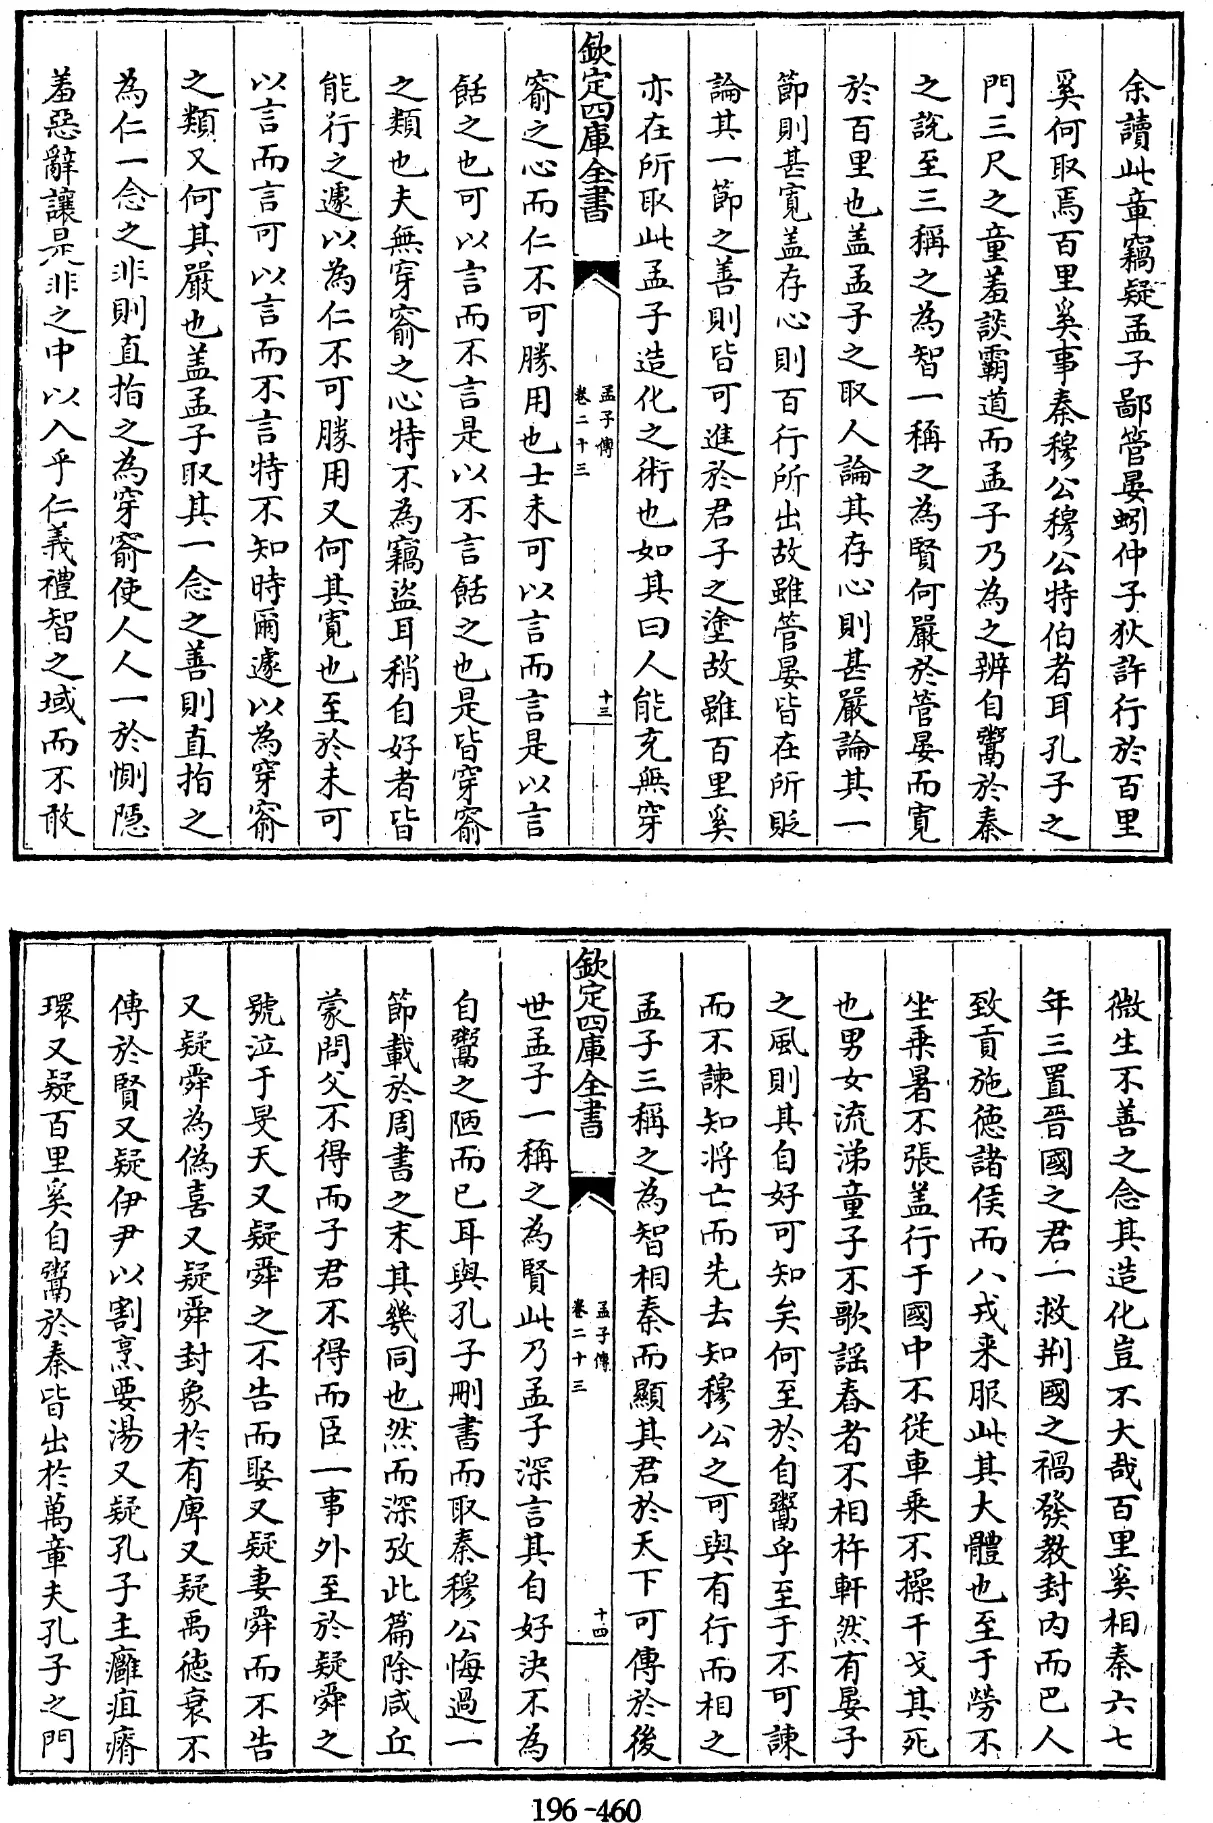 余讀此章竊疑孟子鄙管晏蚓仲子狄許行於百里
奚何取焉百里奚事秦穆公穆公特伯者耳孔子之
門三尺之童羞談霸道而孟子乃為之辨自鬻於秦
之說至三稱之為智一稱之為賢何嚴於管晏而寛
於百里也盖孟子之取人論其存心則甚嚴論其一
節則甚寛盖存心則百行所出故雖管晏皆在所貶
論其一節之善則皆可進於君子之塗故雖百里奚
亦在所取此孟子造化之術也如其曰人能充無穿
欽定四庫全書
孟子傳
卷二十三
十三
窬之心而仁不可勝用也士未可以言而言是以言
餂之也可以言而不言是以不言餂之也是皆穿窬
之類也夫無穿窬之心特不為竊盜耳稍自好者皆
能行之遽以為仁不可勝用又何其寛也至於未可
以言而言可以言而不言特不知時爾遽以為穿窬
之類又何其嚴也盖孟子取其一念之善則直指之
為仁一念之非則直指之為穿窬使人人一於惻隱
羞惡辭讓是非之中以入乎仁義禮智之域而不敢
微生不善之念其造化豈不大哉百里奚相秦六七
年三置晉國之君一救荆國之禍發教封内而巴人
致貢施徳諸侯而八戎来服此其大體也至于勞不
坐乗暑不張盖行于國中不從車乗不操干戈其死
也男女流涕童子不歌謡舂者不相杵軒然有晏子
之風則其自好可知矣何至於自鬻乎至于不可諫
而不諫知將亡而先去知穆公之可與有行而相之
孟子三稱之為智相秦而顯其君於天下可傳於後
欽定四庫全書
孟子傳
卷二十三
十四
世孟子一稱之為賢此乃孟子深言其自好決不為
自鬻之陋而已耳與孔子刪書而取秦穆公悔過一
節載於周書之末其幾同也然而深攷此篇除咸丘
蒙問父不得而子君不得而臣一事外至於疑舜之
號泣于旻天又疑舜之不告而娶又疑妻舜而不告
又疑舜為偽喜又疑舜封象於有庳又疑禹徳衰不
傳於賢又疑伊尹以割烹要湯又疑孔子主癰疽瘠
環又疑百里奚自鬻於秦皆出於萬章夫孔子之門
196-460